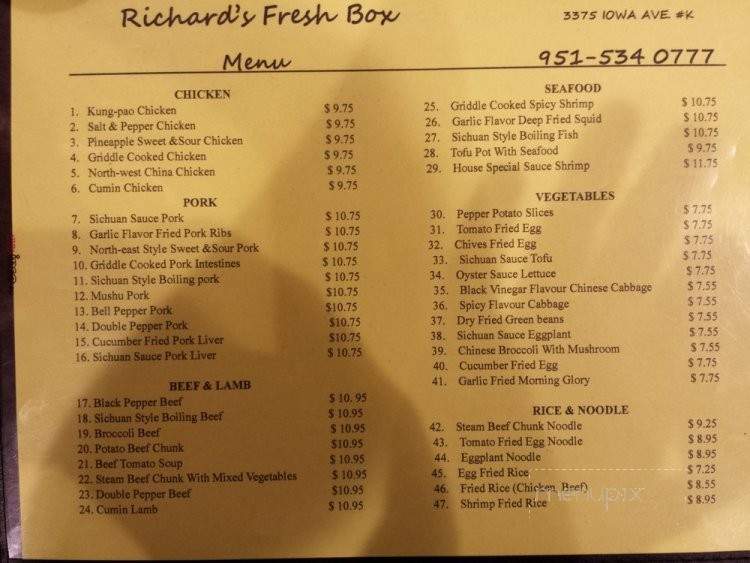 Richard's Fresh Box
3375 IOWA AVE #K
Menu
951-534 0777
CHICKEN
1. Kung-pao Chicken $ 9.75
2. Salt & Pepper Chicken $ 9.75
3. Pineapple Sweet &Sour Chicken $ 9.75
4. Griddle Cooked Chicken $ 9.75
5. North-west China Chicken $ 9.75
6. Cumin Chicken $ 9.75
PORK
7. Sichuan Sauce Pork $ 10.75
8. Garlic Flavor Fried Pork Ribs $ 10.75
9. North-east Style Sweet &Sour Pork $ 10.75
10. Griddle Cooked Pork Intestines $ 10.75
11. Sichuan Style Boiling pork $ 10.75
12. Mushu Pork $10.75
13. Bell Pepper Pork $10.75
14. Double Pepper Pork $10.75
15. Cucumber Fried Pork Liver $10.75
16. Sichuan Sauce Pork Liver $ 10.75
BEEF & LAMB
17. Black Pepper Beef $ 10. 95
18. Sichuan Style Boiling Beef $ 10.95
19. Broccoli Beef $ 10.95
20. Potato Beef Chunk $10.95
21. Beef Tomato Soup $ 10.95
22. Steam Beef Chunk With Mixed Vegetables $ 10.95
23. Double Pepper Beef $10.95
24. Cumin Lamb $ 10.95
SEAFOOD
25. Griddle Cooked Spicy Shrimp $ 10.75
26. Garlic Flavor Deep Fried Squid $ 10.75
27. Sichuan Style Boiling Fish $ 10.75
28. Tofu Pot With Seafood $ 9.75
29. House Special Sauce Shrimp $ 11.75
VEGETABLES
30. Pepper Potato Slices $ 7.75
31. Tomato Fried Egg $ 7.75
32. Chives Fried Egg $ 7.75
33. Sichuan Sauce Tofu $ 7.75
34. Oyster Sauce Lettuce $ 7.75
35. Black Vinegar Flavour Chinese Cabbage $ 7.55
36. Spicy Flavour Cabbage $ 7.55
37. Dry Fried Green beans $ 7.55
38. Sichuan Sauce Eggplant $ 7.55
39. Chinese Broccoli With Mushroom $ 7.55
40. Cucumber Fried Egg $ 7.75
41. Garlic Fried Morning Glory $ 7.75
RICE & NOODLE
42. Steam Beef Chunk Noodle $ 9.25
43. Tomato Fried Egg Noodle $ 8.95
44. Eggplant Noodle $ 8.95
45. Egg Fried Rice $ 7.25
46. Fried Rice (Chicken, Beef) $ 8.55
47. Shrimp Fried Rice $ 8.95
menupix